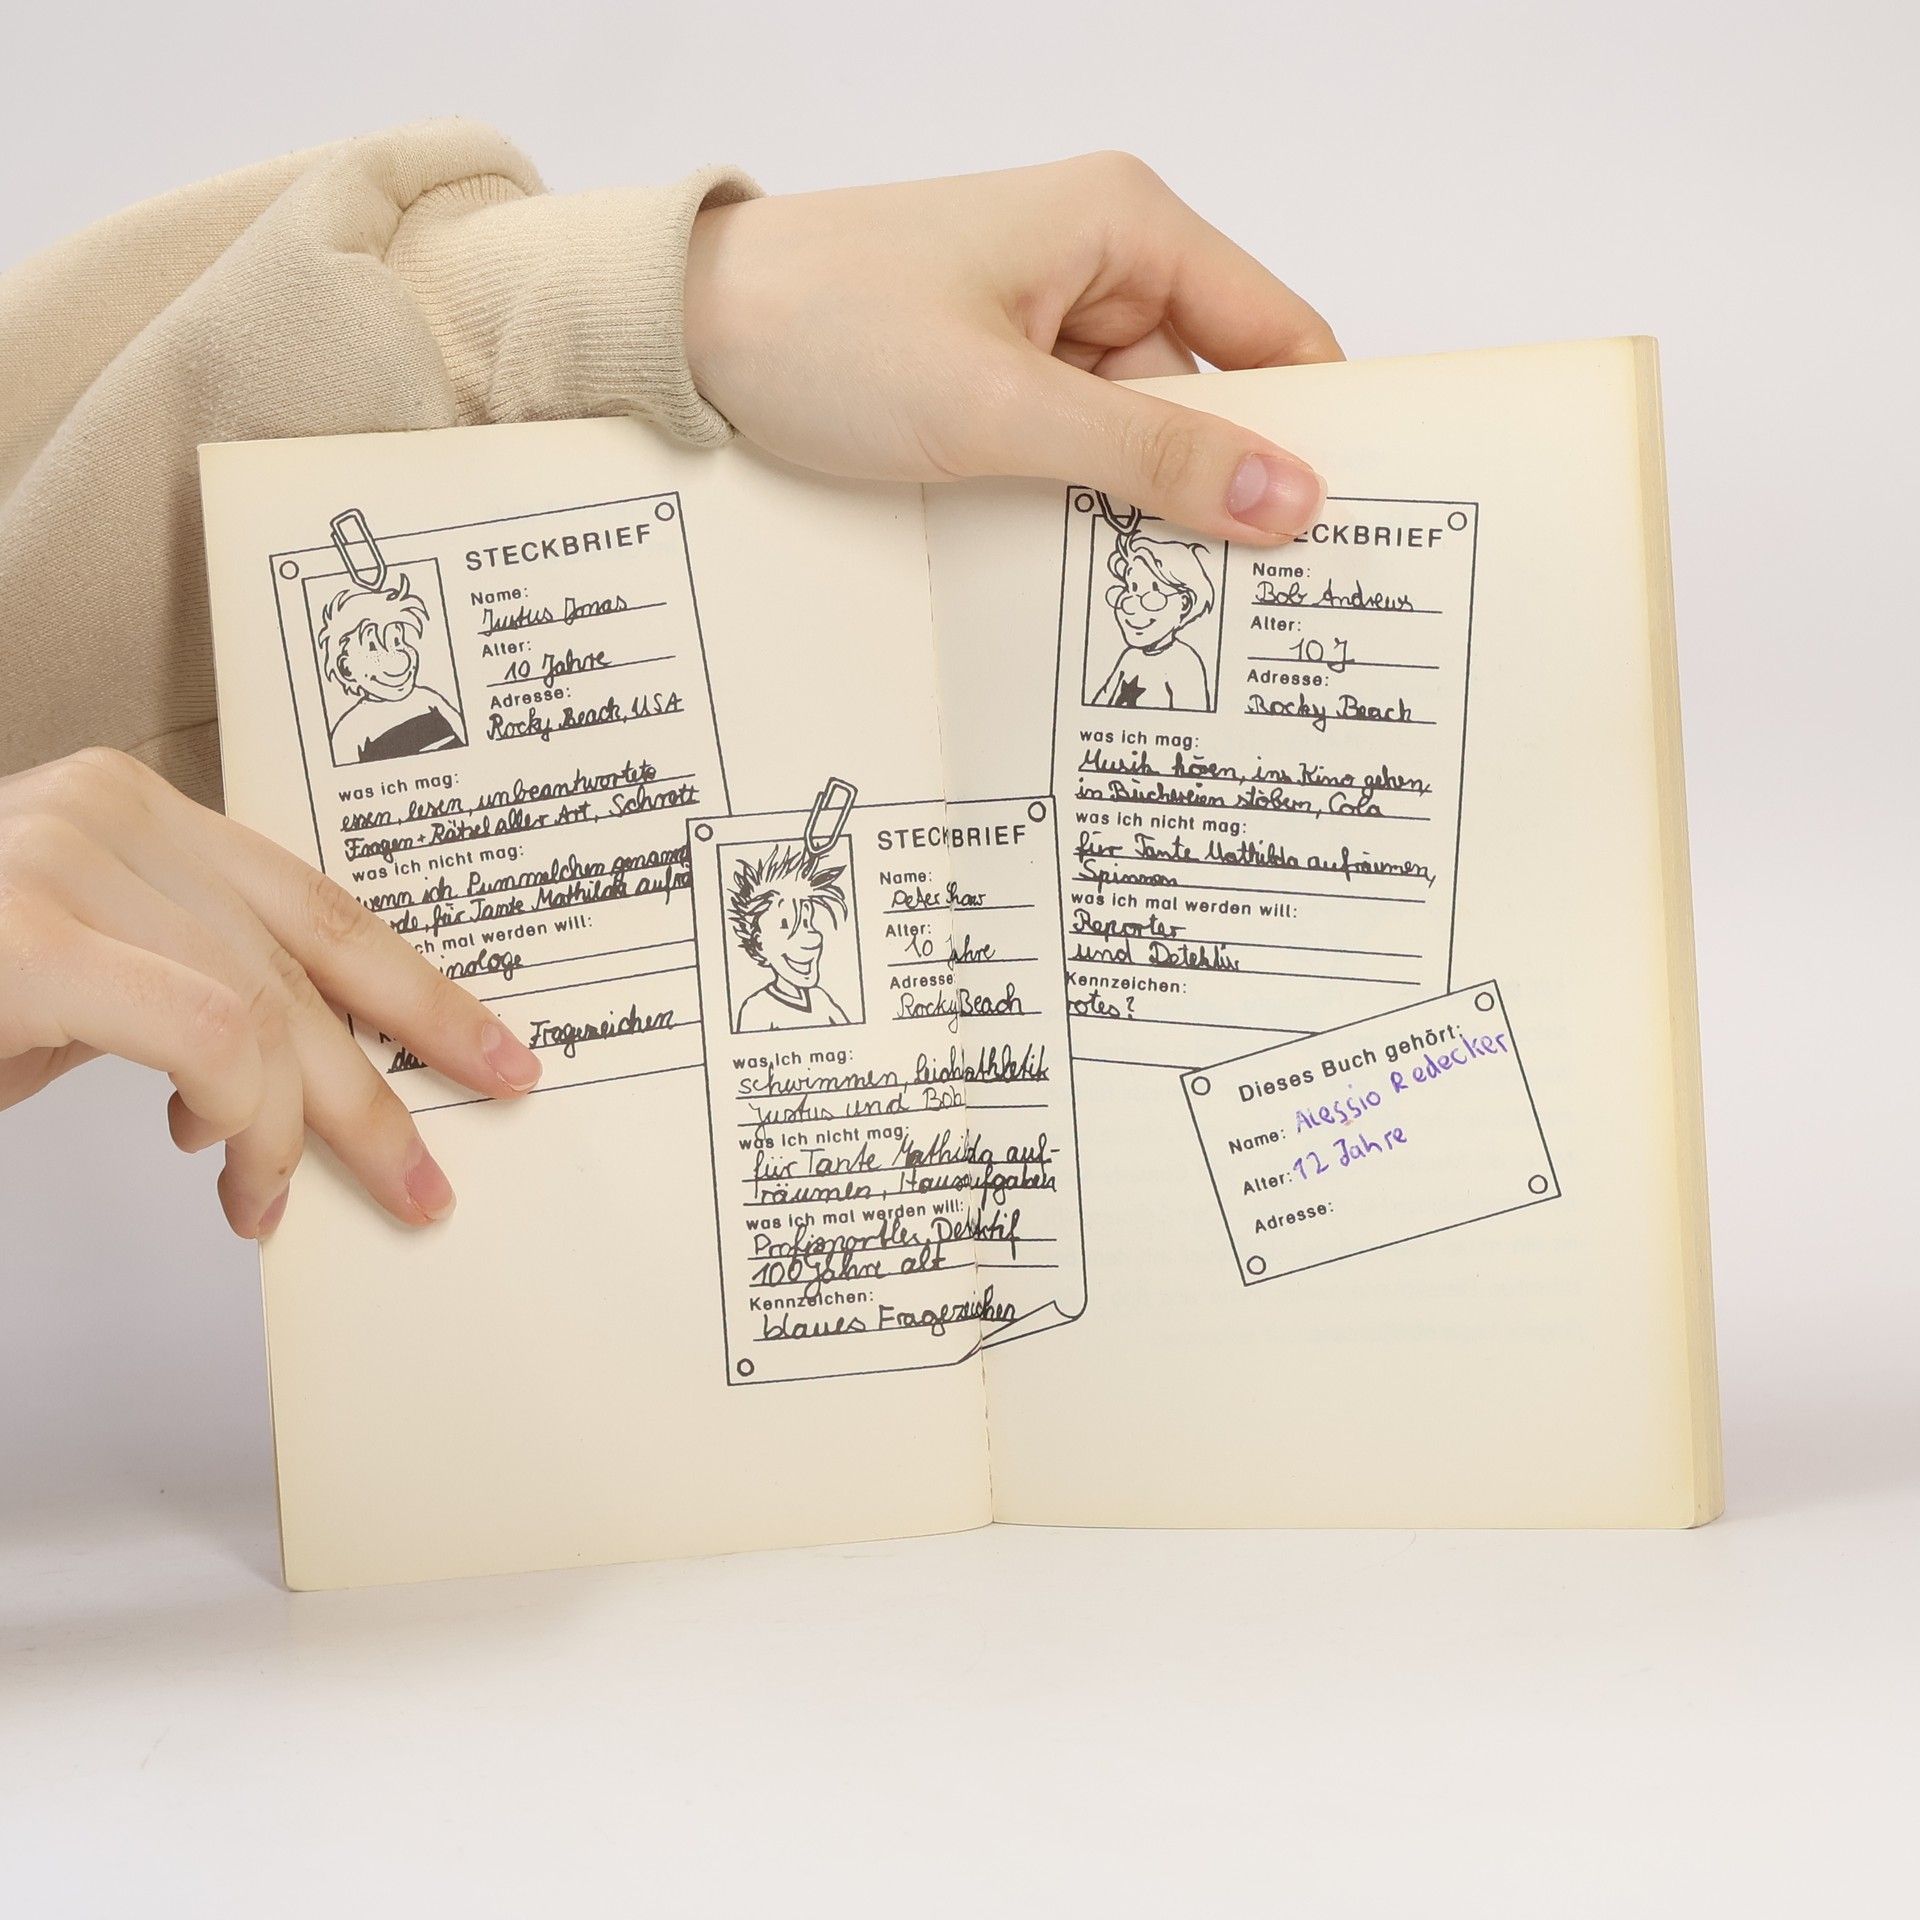 STECKBRIEF
Name:
Justus Jonas
Alter:
10 Jahre
Adresse:
Rocky Beach, USA
was ich mag:
essen, lesen, unbeantwortete
Fragen + Rätsel aller Art, Schrott
was ich nicht mag:
wenn ich Pummelchen genannt
für Tante Mathilda
ch mal werden will:
inologe
Fragezeichen
STECKBRIEF
Name:
Peter Shaw
Alter:
10 Jahre
Adresse
Rocky Beach
was ich mag:
schwimmen, Leichathletik
Justus und Bob
was ich nicht mag:
für Tante Mathilda auf-
räumen, Hausaufgaben
was ich mal werden will:
Profisportler, Detektif
100 Jahre alt
Kennzeichen:
blaues Fragezeichen
ECKBRIEF
Name:
Bob Andrews
Alter:
10 J
Adresse:
Rocky Beach
was ich mag:
Musik hören, ins Kino gehen,
in Büchereien stöbern, Cola
was ich nicht mag:
für Tante Mathilda aufräumen,
Spinnen
was ich mal werden will:
Reporter
und Detektiv
Kennzeichen:
rotes?
Dieses Buch gehört:
Name: Alessio Redecker
Alter: 12 Jahre
Adresse: